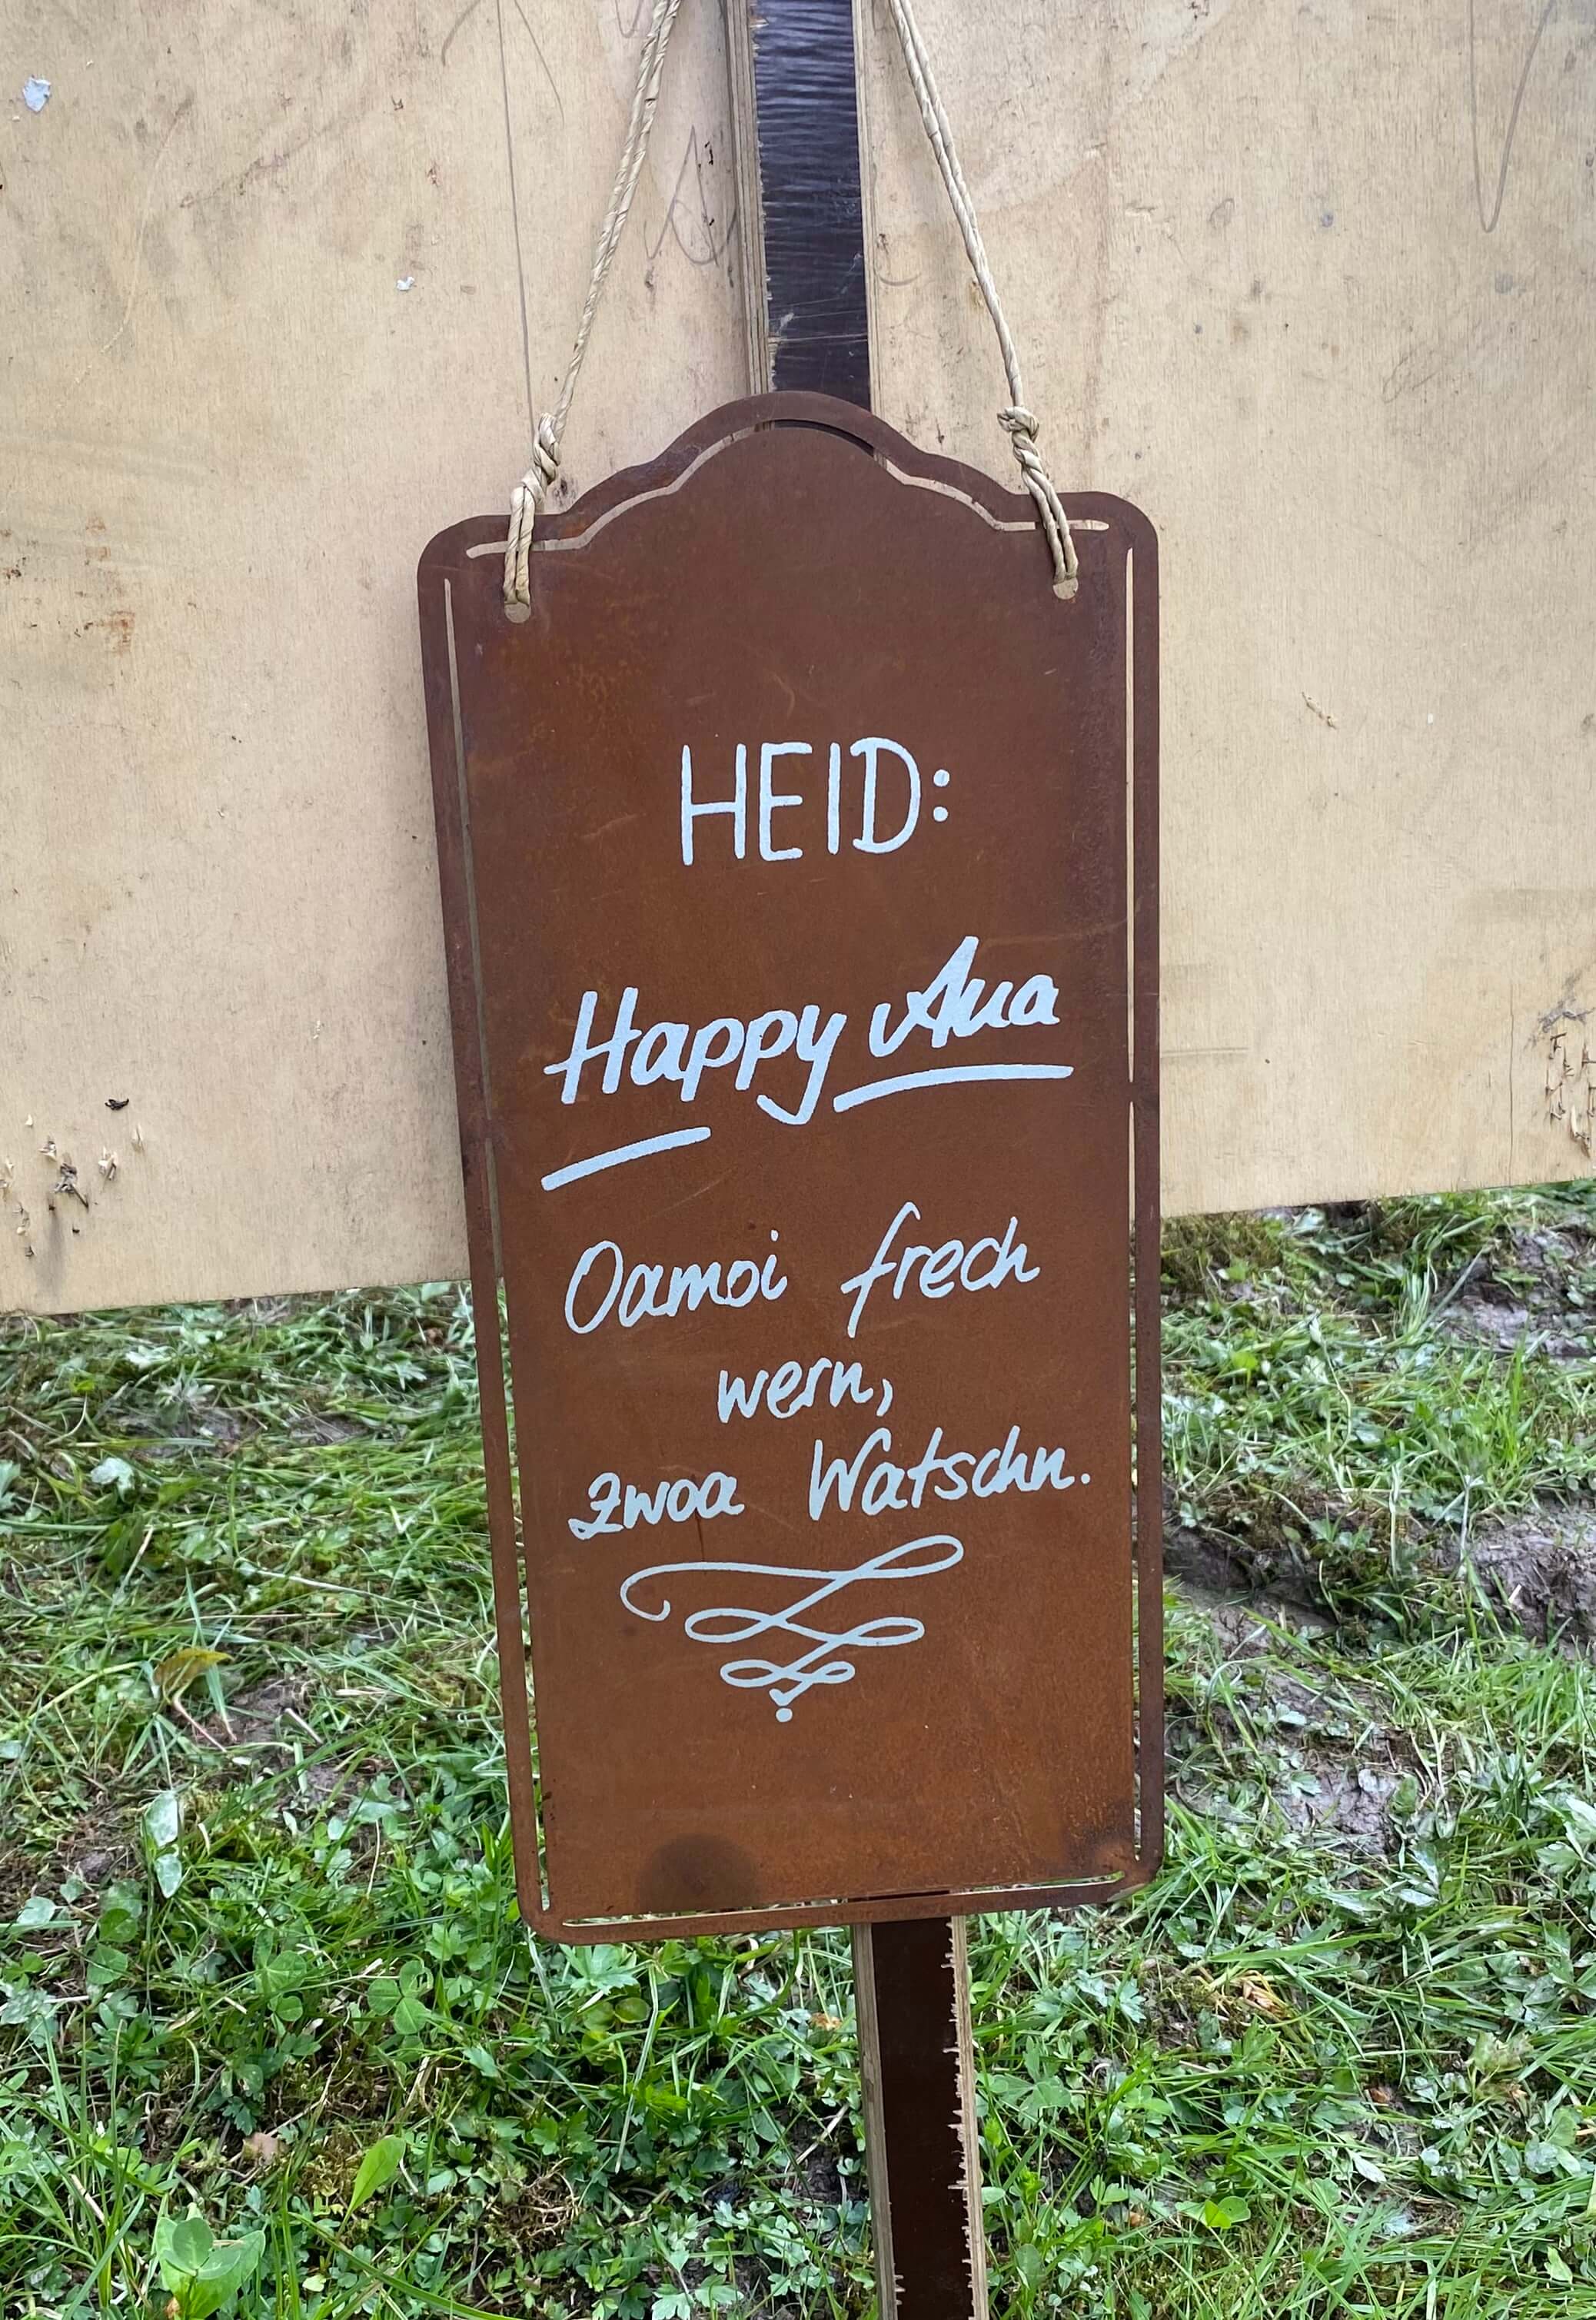 HEID:
Happy Aua
Oamoi frech
wern,
zwoa Watschn.